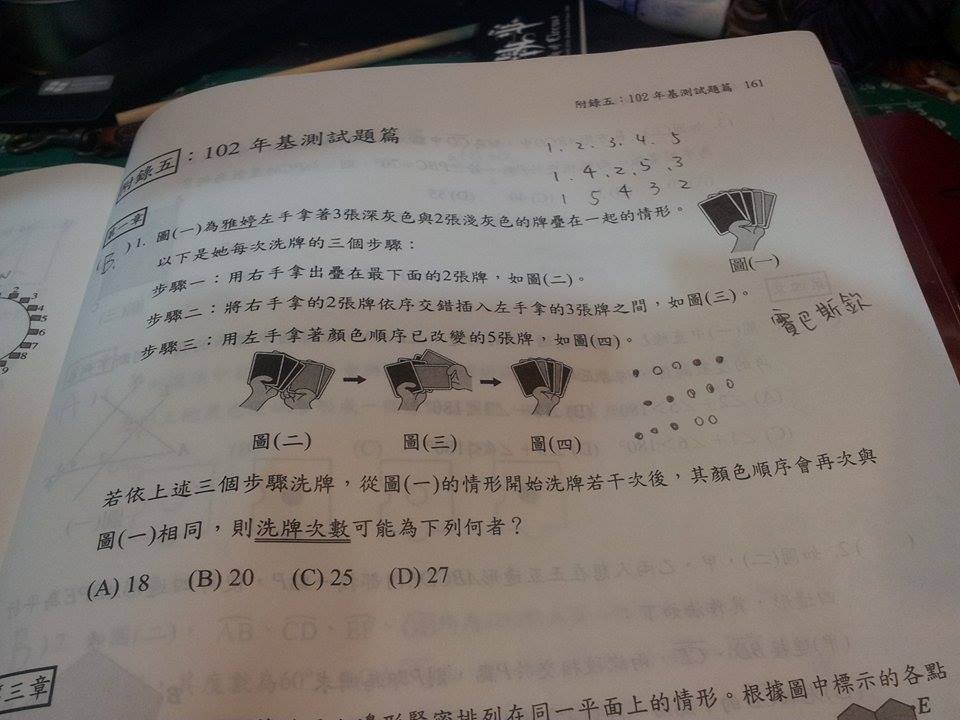 附錄五：102年基測試題篇 161
附錄五：102 年基測試題篇
1. 2. 3. 4. 5
1. 4. 2. 5. 3
1 5 4 3 2
第一章
(B) 1. 圖(一)為雅婷左手拿著3張深灰色與2張淺灰色的牌疊在一起的情形。
以下是她每次洗牌的三個步驟：
圖(一)
步驟一：用右手拿出疊在最下面的2張牌，如圖(二)。
步驟二：將右手拿的2張牌依序交錯插入左手拿的3張牌之間，如圖(三)。
步驟三：用左手拿著顏色順序已改變的5張牌，如圖(四)。
賽巴斯欽
圖(二) 圖(三) 圖(四)
若依上述三個步驟洗牌，從圖(一)的情形開始洗牌若干次後，其顏色順序會再次與
圖(一)相同，則洗牌次數可能為下列何者？
(A) 18 (B) 20 (C) 25 (D) 27
第三章
排列在同一平面上的情形。根據圖中標示的各點
E
2
3
4
5
6
7
8
9